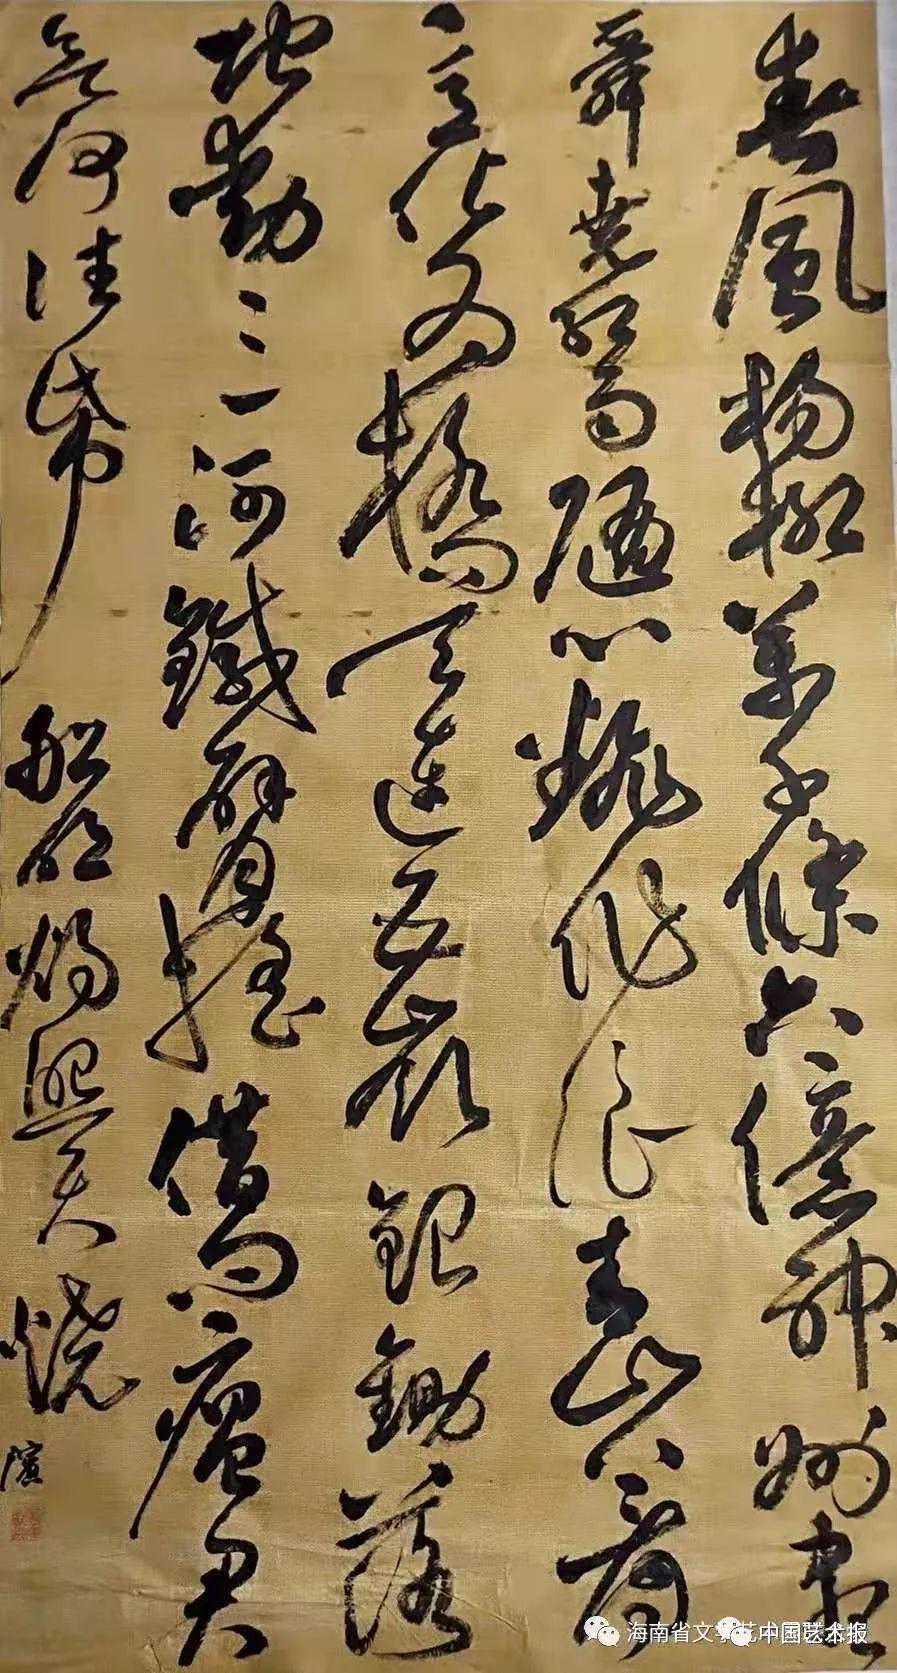 春風楊柳萬千條六億神州盡
舜堯紅雨隨心翻作浪青山着
意化為橋天連五嶺銀鋤落
地動三河鐵臂搖借問瘟君
欲何往帋船明燭照天燒
海南省文
中国艺术报